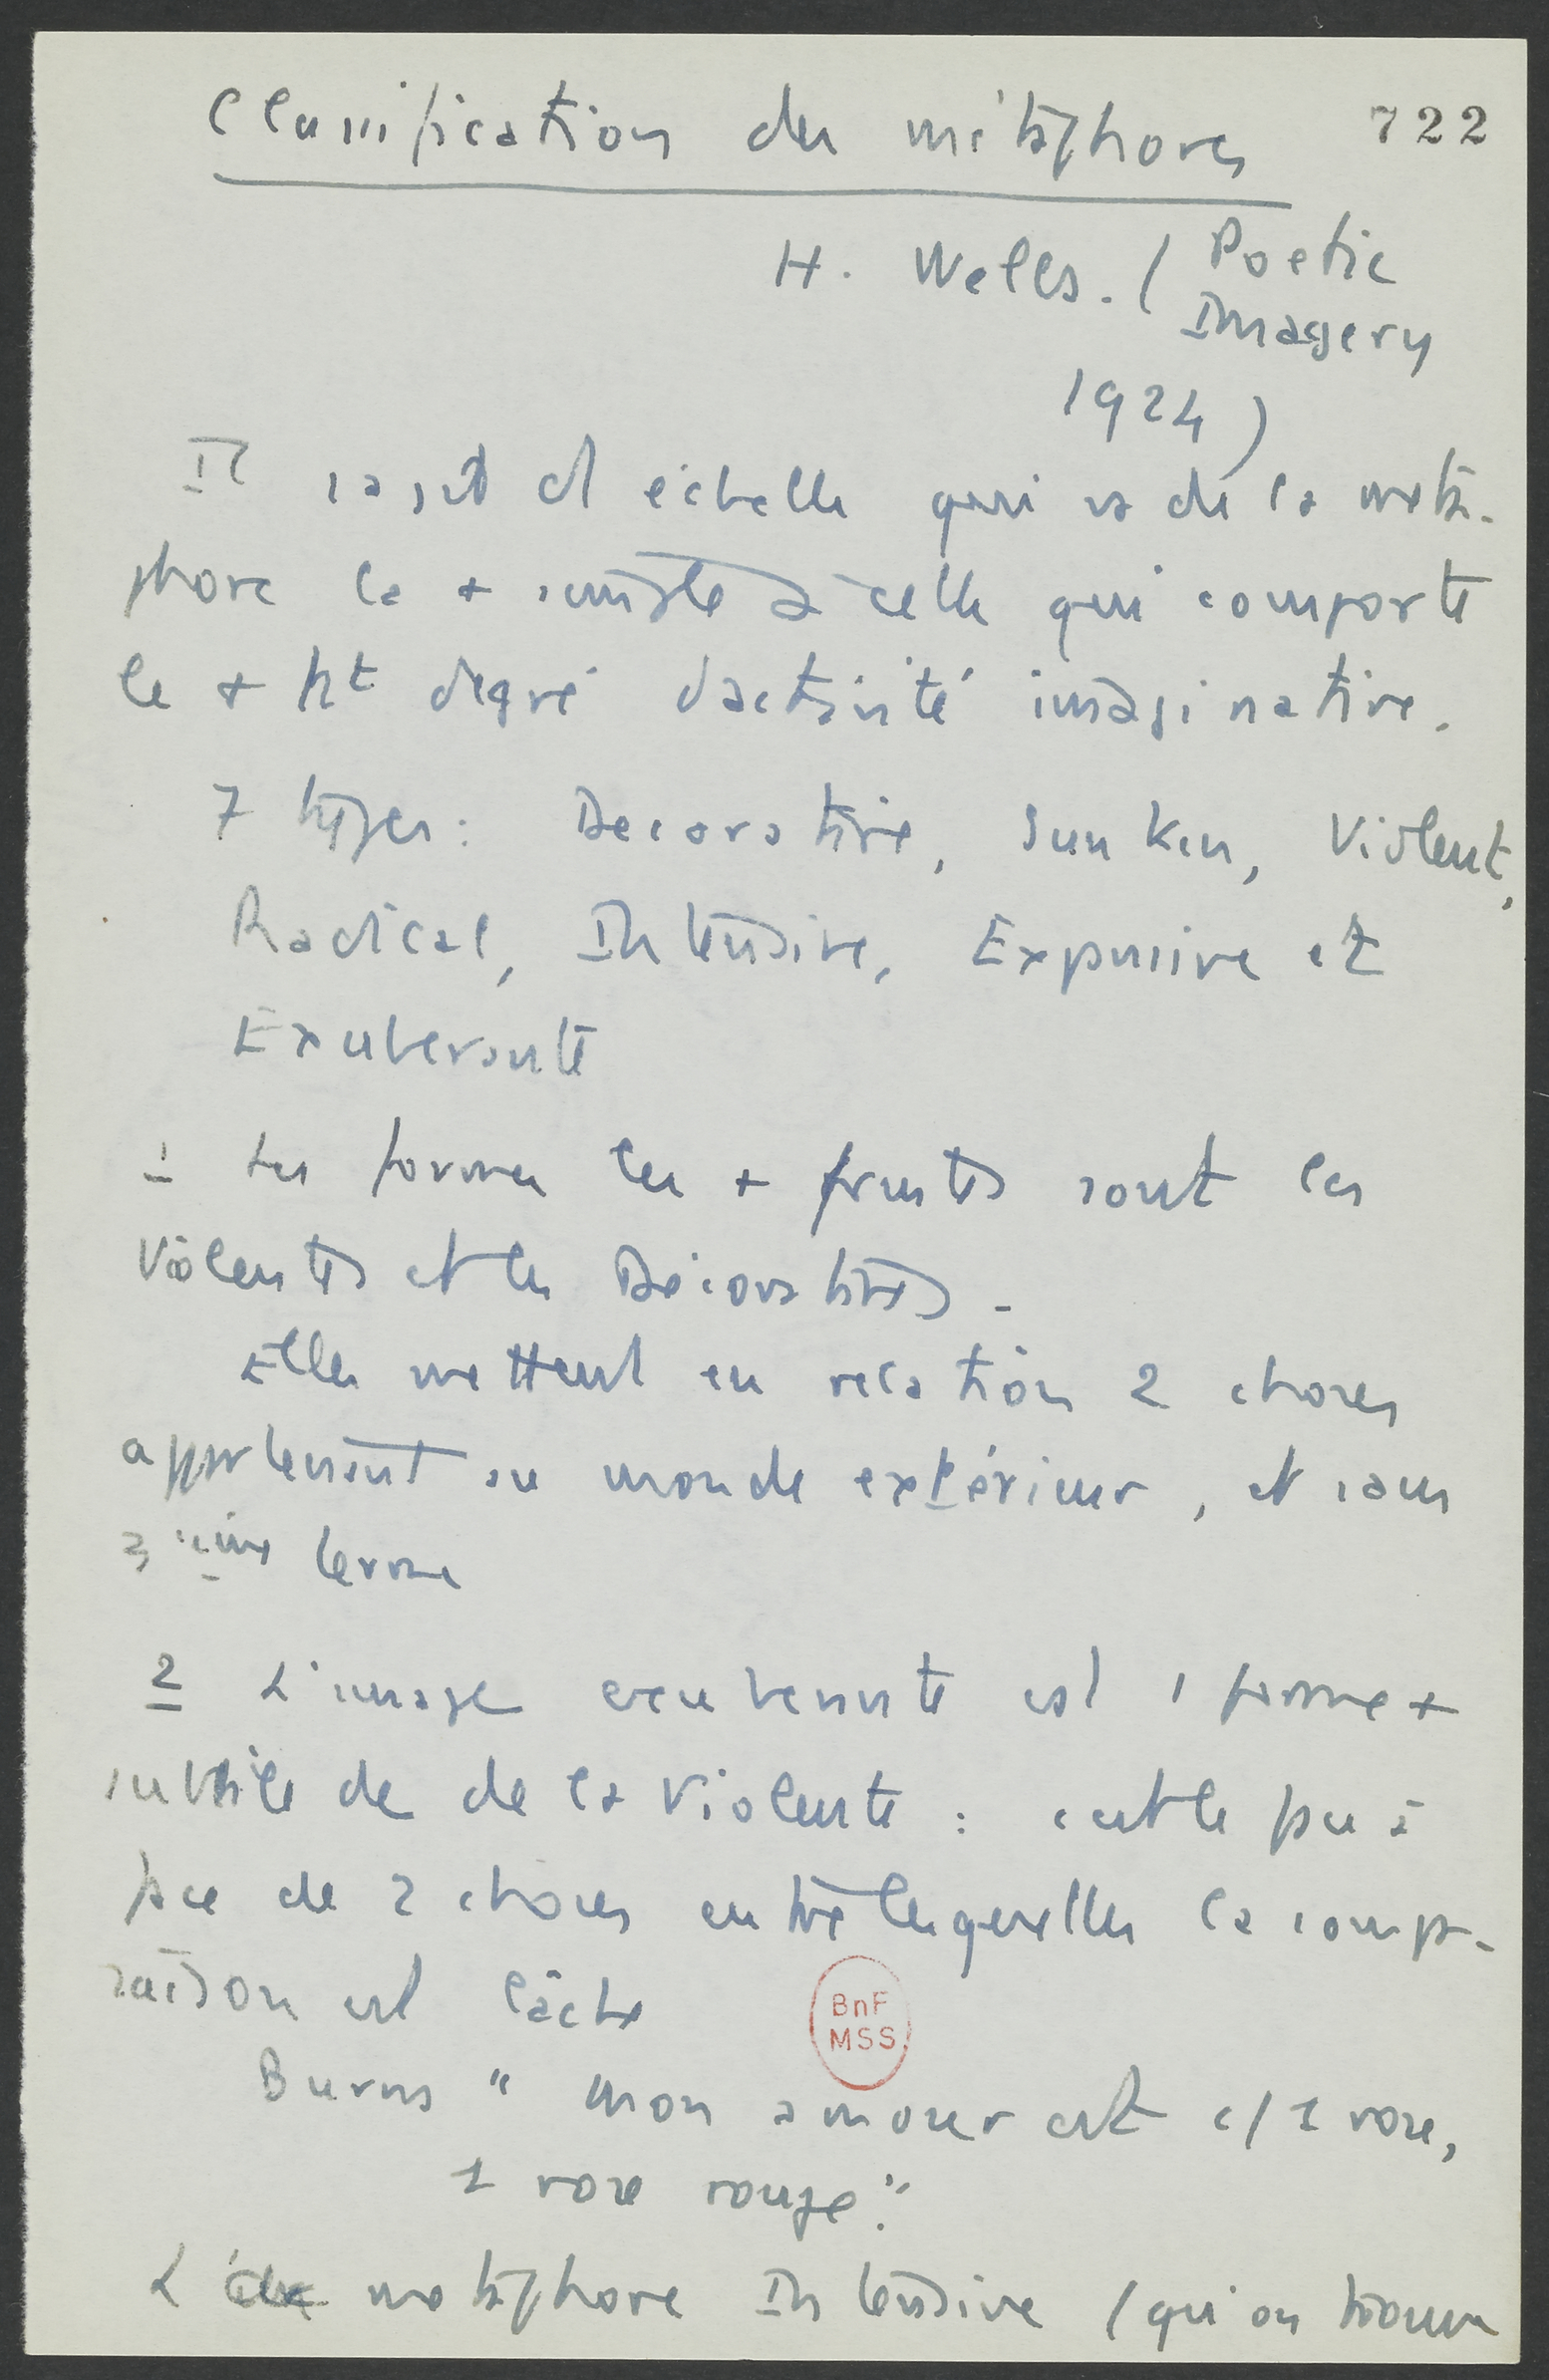 Classification des métaphores 722
H. Wells. (Poetic
Imagery
1924)
Il s'agit d échelle qui va de la méta-
phore la + simple à celle qui comporte
le + ht degré d'activité imaginative.
7 types : Decorative, Sunken, Violent,
Radical, Intensive, Expansive et
Exuberante
1 Les formes les + frustes sont les
Violentes et les Décoratives.
Elles mettent en relation 2 choses
appartenant au monde extérieur, et sans
3ième terme
2 L'image exubérante est 1 forme +
subtile de de la Violente :
face de 2 choses entre lesquelles la compa-
raison est lâche
Burns "mon amour est c/ 1 rose,
1 rose rouge."
BnF
MSS
L métaphore Intensive (qu'on trouve